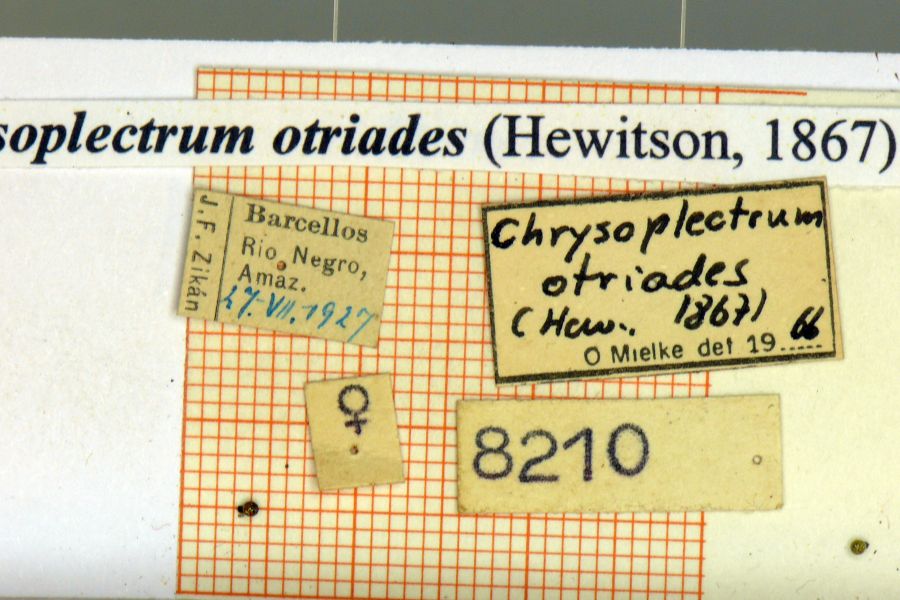 soplectrum otriades (Hewitson, 1867)
J. F. Zikán
Barcellos
Rio Negro,
Amaz.
27.VII.1927
Chrysoplectrum
otriades
(Hew., 1867)
O Mielke det 1966
♀
8210